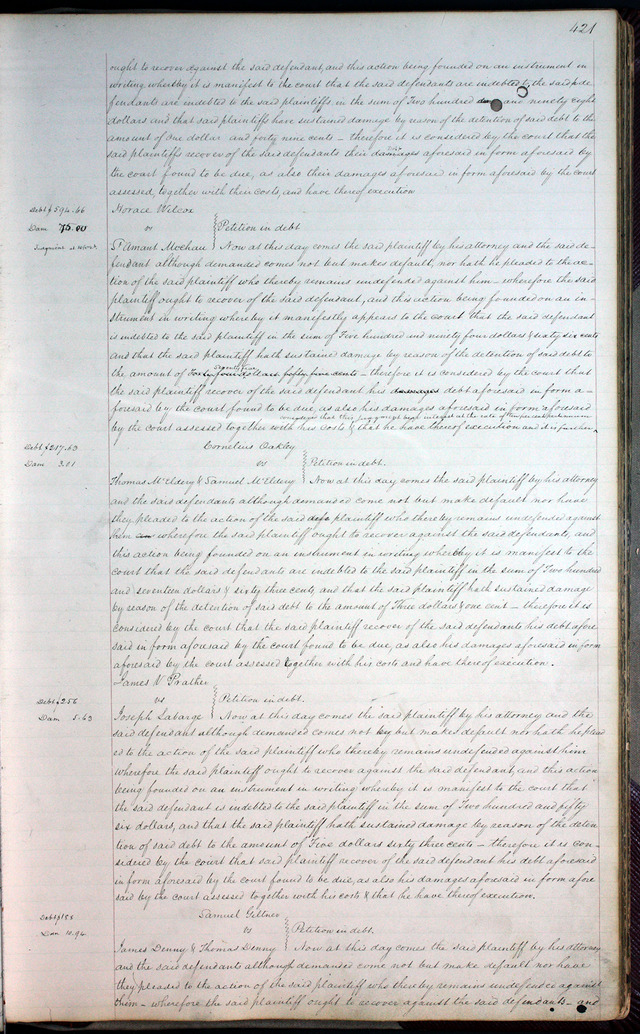 421
ought to recover against the said defendant, and this action being founded on an instrument in
writing whereby it is manifest to the court that the said defendants are indebted to the said de-
fendants are indebted to the said plaintiffs in the sum of Two hundred and ninety eight
dollars and that said plaintiffs have sustained damage by reason of the detention of said debt to the
amount of one dollar and forty nine cents – therefore it is considered by the court that the
said plaintiffs recover of the said defendants their damages aforesaid in form aforesaid by
the court found to be due, as also their damages aforesaid in form aforesaid by the court
assessed, together with their costs, and have thereof execution
Debt $594.66 Horace Wilcox
Dam 75.00 vs Petition in debt
St Amant Mochau Now at this day comes the said plaintiff by his attorney and the said de-
fendant although demanded comes not but makes default, nor hath he pleaded to the ac-
tion of the said plaintiff who thereby remains undefended against him – wherefore the said
plaintiff ought to recover of the said defendant, and this action being founded on an in-
strument in writing whereby it manifestly appears to the court that the said defendant
is indebted to the said plaintiff in the sum of Five hundred and ninety four dollars & sixty six cents
and that the said plaintiff hath sustained damage by reason of the detention of said debt to
the amount of Forty four dollars fifty five cents – therefore it is considered by the court that
the said plaintiff recover of the said defendant his damages debt aforesaid in form a-
foresaid by the court found to be due, as also his damages aforesaid in form aforesaid
considered that this judgment bear interest at the rate of ten per cent per annum
by the court assessed together with his costs & that he have thereof execution and it is further
Debt $217.63 Cornelius Oakley
Dam 3.01 vs Petition in debt.
Thomas McEldery & Samuel McEldery Now at this day comes the said plaintiff by his attorney
and the said defendants although demanded come not but make default nor have
they pleaded to the action of the said defe plaintiff who thereby remains undefended against
him an wherefore the said plaintiff ought to recover against the said defendants, and
this action being founded on an instrument in writing whereby it is manifest to the
court that the said defendants are indebted to the said plaintiff in the sum of Two hundred
and seventeen dollars & sixty three cents, and that the said plaintiff hath sustained damage
by reason of the detention of said debt to the amount of Three dollars & one cent – therefore it is
considered by the court that the said plaintiff recover of the said defendants his debt afore
said in form aforesaid by the court found to be due, as also his damages aforesaid in form
aforesaid by the court assessed together with his costs and have thereof execution.
James V Prather
Debt $256 vs Petition in debt.
Dam 5.63 Joseph Labarge Now at this day comes the said plaintiff by his attorney and the
said defendant although demanded comes not but makes default nor hath he plead
ed to the action of the said plaintiff who thereby remains undefended against him
wherefore the said plaintiff ought to recover against the said defendant, and this action
being founded on an instrument in writing whereby it is manifest to the court that
the said defendant is indebted to the said plaintiff in the sum of Two hundred and fifty
six dollars, and that the said plaintiff hath sustained damage by reason of the deten
tion of said debt to the amount of Five dollars sixty three cents – therefore it is con-
sidered by the court that said plaintiff recover of the said defendant his debt aforesaid
in form aforesaid by the court found to be due, as also his damages aforesaid in form afore
said by the court assessed together with his costs & that he have thereof execution.
Debt $158 Samuel Giltner
Dam 10.94 vs Petition in debt.
James Denny & Thomas Denny Now at this day comes the said plaintiff by his attorney
and the said defendants although demanded come not but make default nor have
they pleased to the action of the said plaintiff who thereby remains undefended against
them – wherefore the said plaintiff ought to recover against the said defendants – and